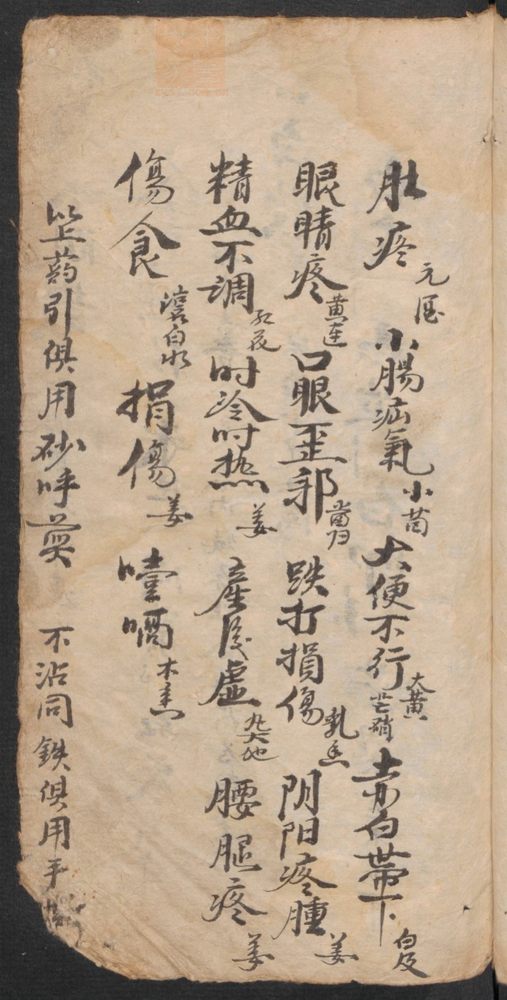 肚疼 元酒 小腸疝氣 小茴 大便不行 大黄芒硝 赤白帶下 白及
眼睛疼 黄连 口眼歪邪 當归 跌打損傷 乳香 阴阳疼腫 姜
精血不调 红花 时冷时热 姜 産後虚 九大地 腰腿疼 姜
傷食 滚白水 捐傷 姜 噎嗝 木香
以上药引俱用砂呼 不沾同鉄俱用手